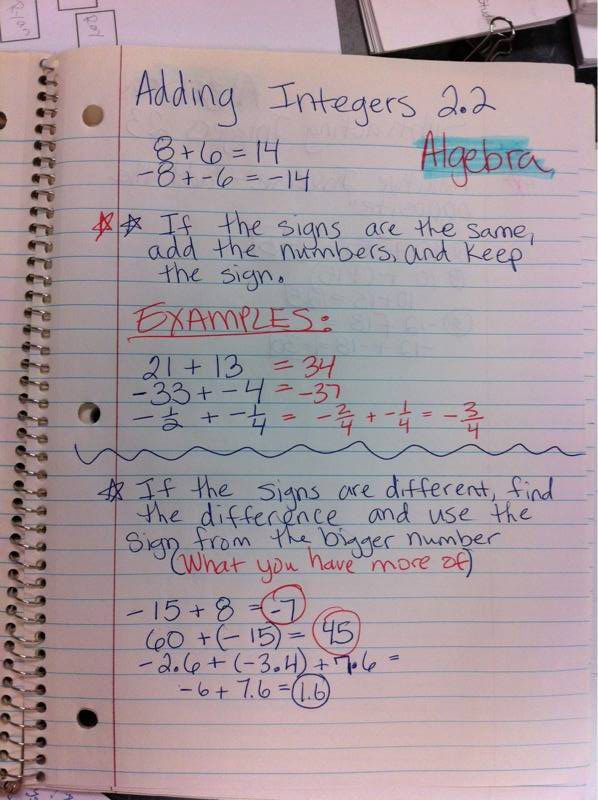 Rylan
Roy
Stud
Adding Integers 2.2
Algebra
8 + 6 = 14
-8 + -6 = -14
☆ ☆ If the signs are the same,
add the numbers, and keep
the sign.
EXAMPLES:
21 + 13 = 34
-33 + -4 = -37
-1/2 + -1/4 = -2/4 + -1/4 = -3/4
☆ If the signs are different, find
the difference and use the
sign from the bigger number
(What you have more of)
-15 + 8 = -7
60 + (-15) = 45
-2.6 + (-3.4) + 7.6 =
-6 + 7.6 = 1.6